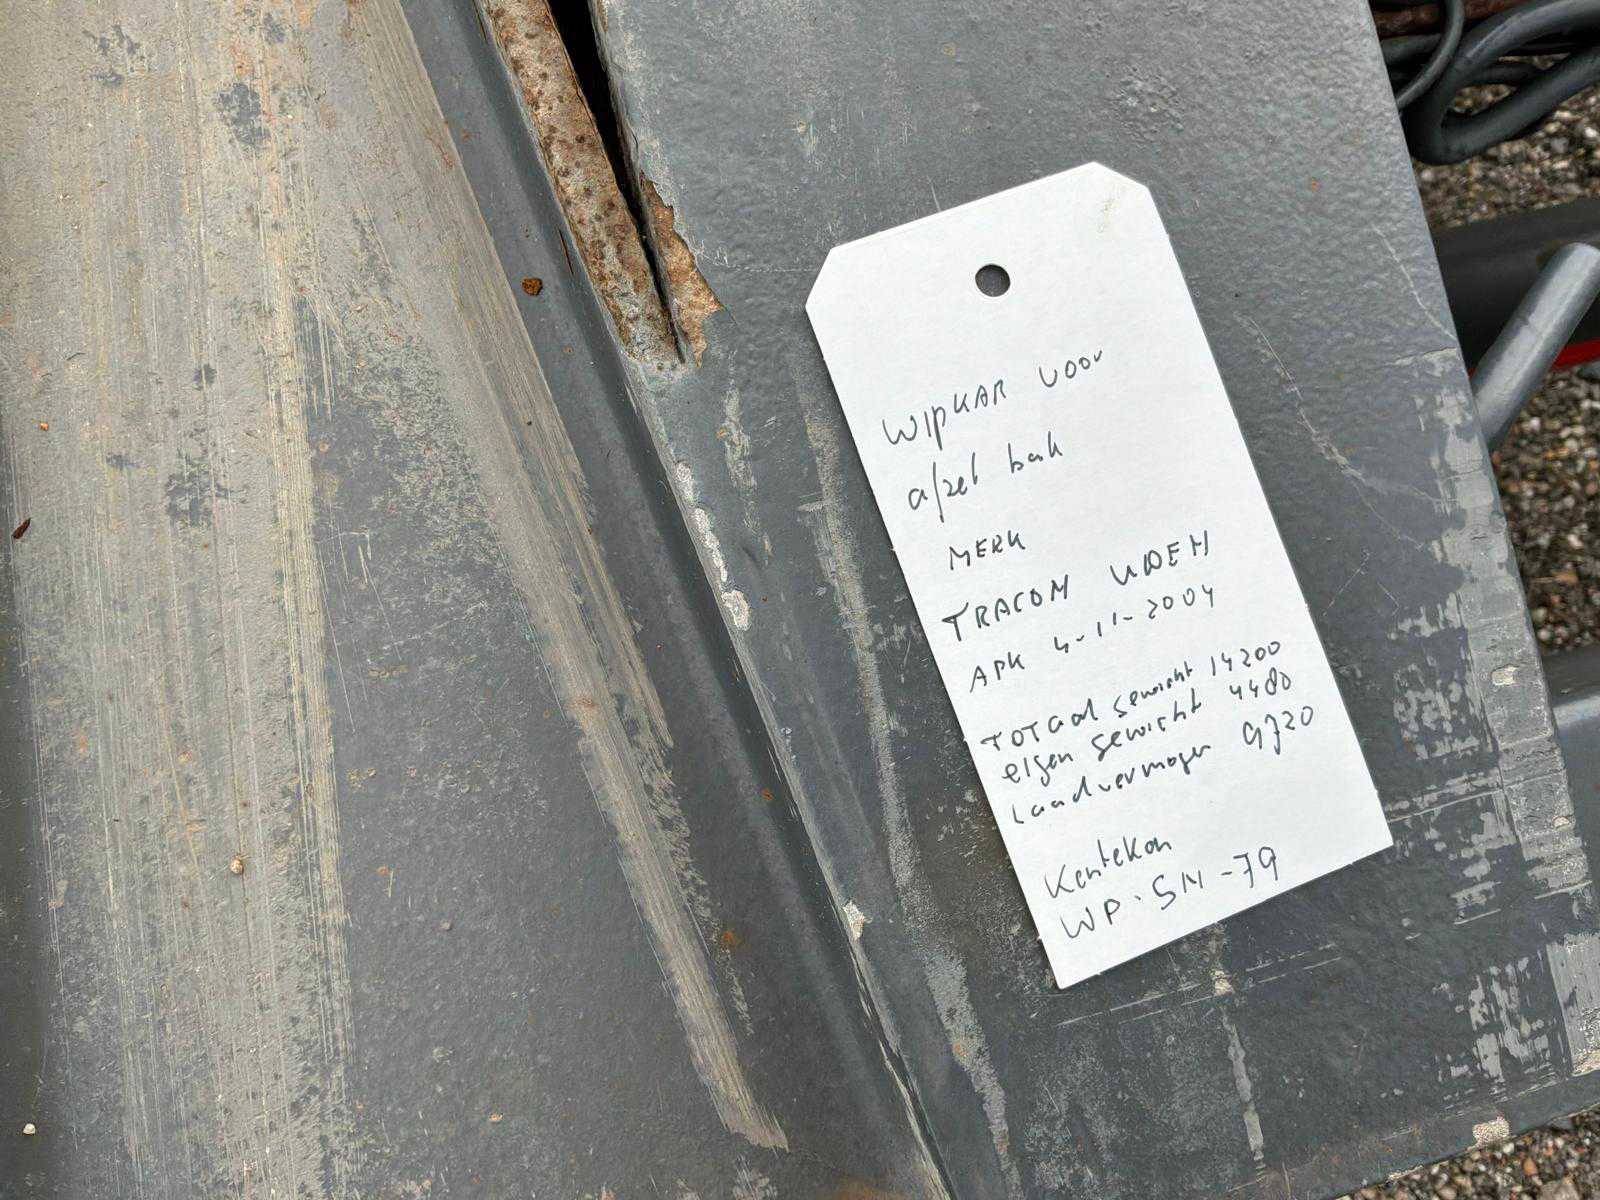 WIPKAR voor
afzet bak
MERK
TRACON UDEN
APK 4-11-2004
TOTaal gewicht 14200
eigen gewicht 4480
Laadvermogen 9720
Kenteken
WP-SN-79